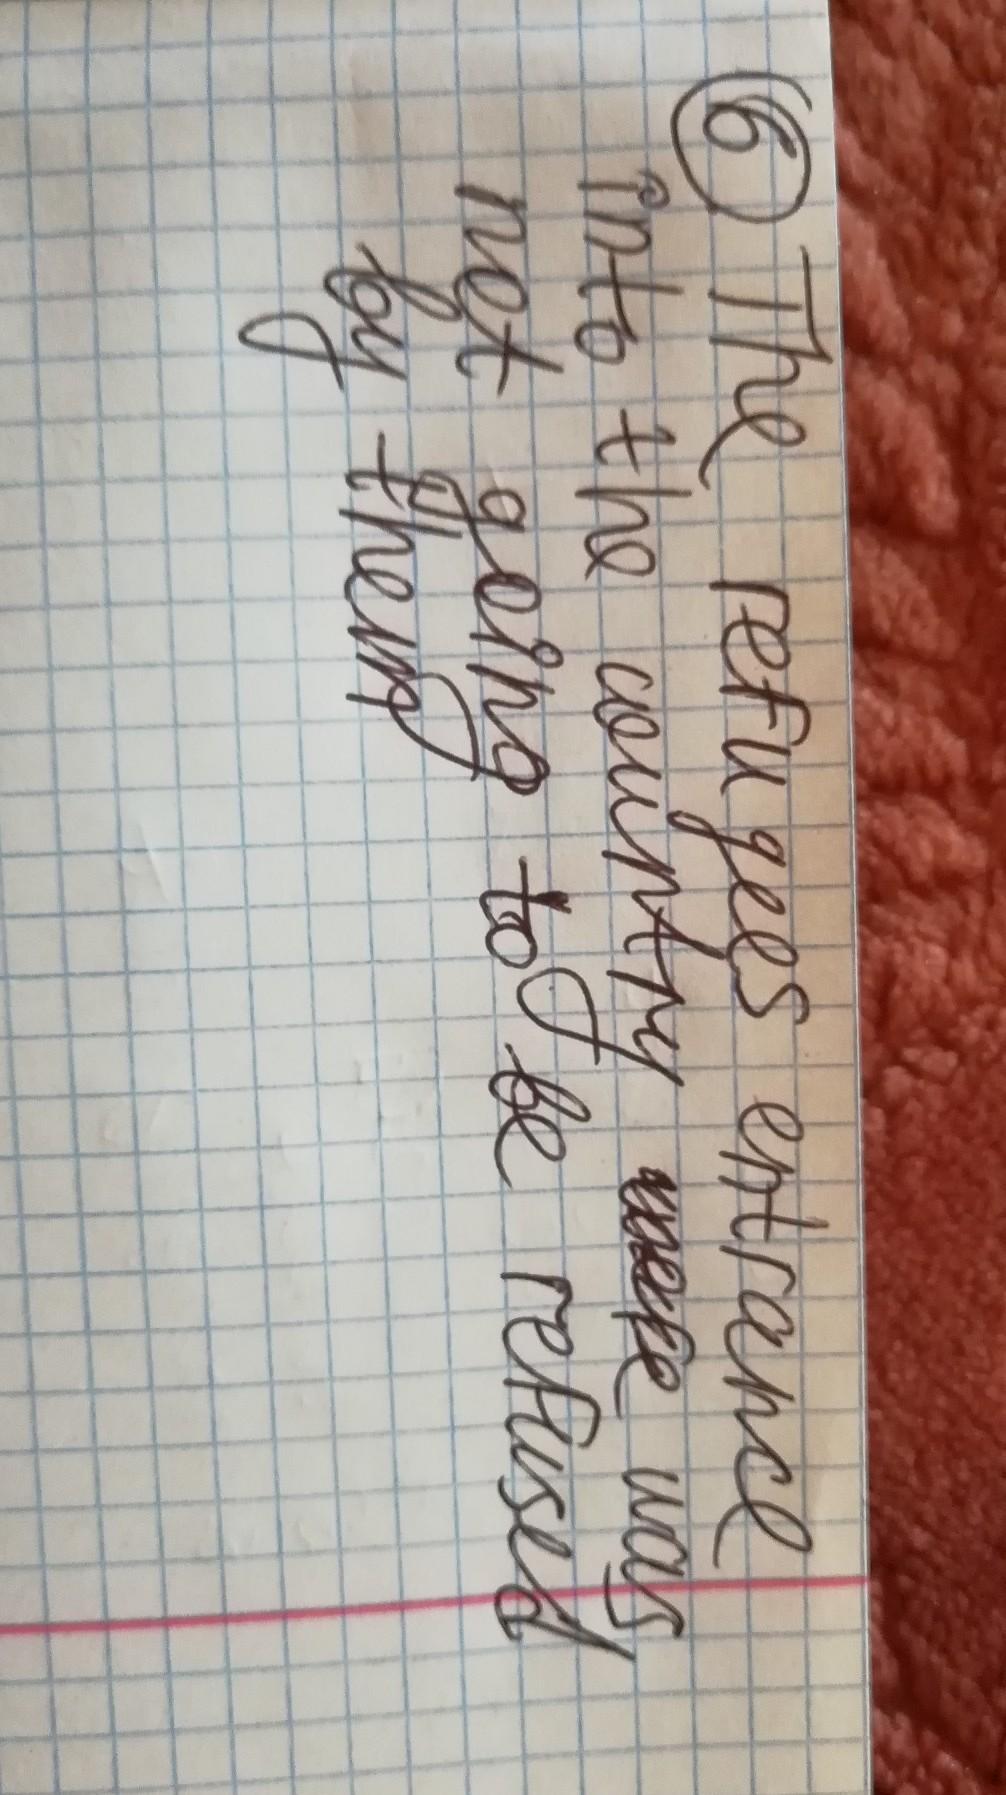 ⑥ The refuges entrance
into the country was
not going to be refused
by them